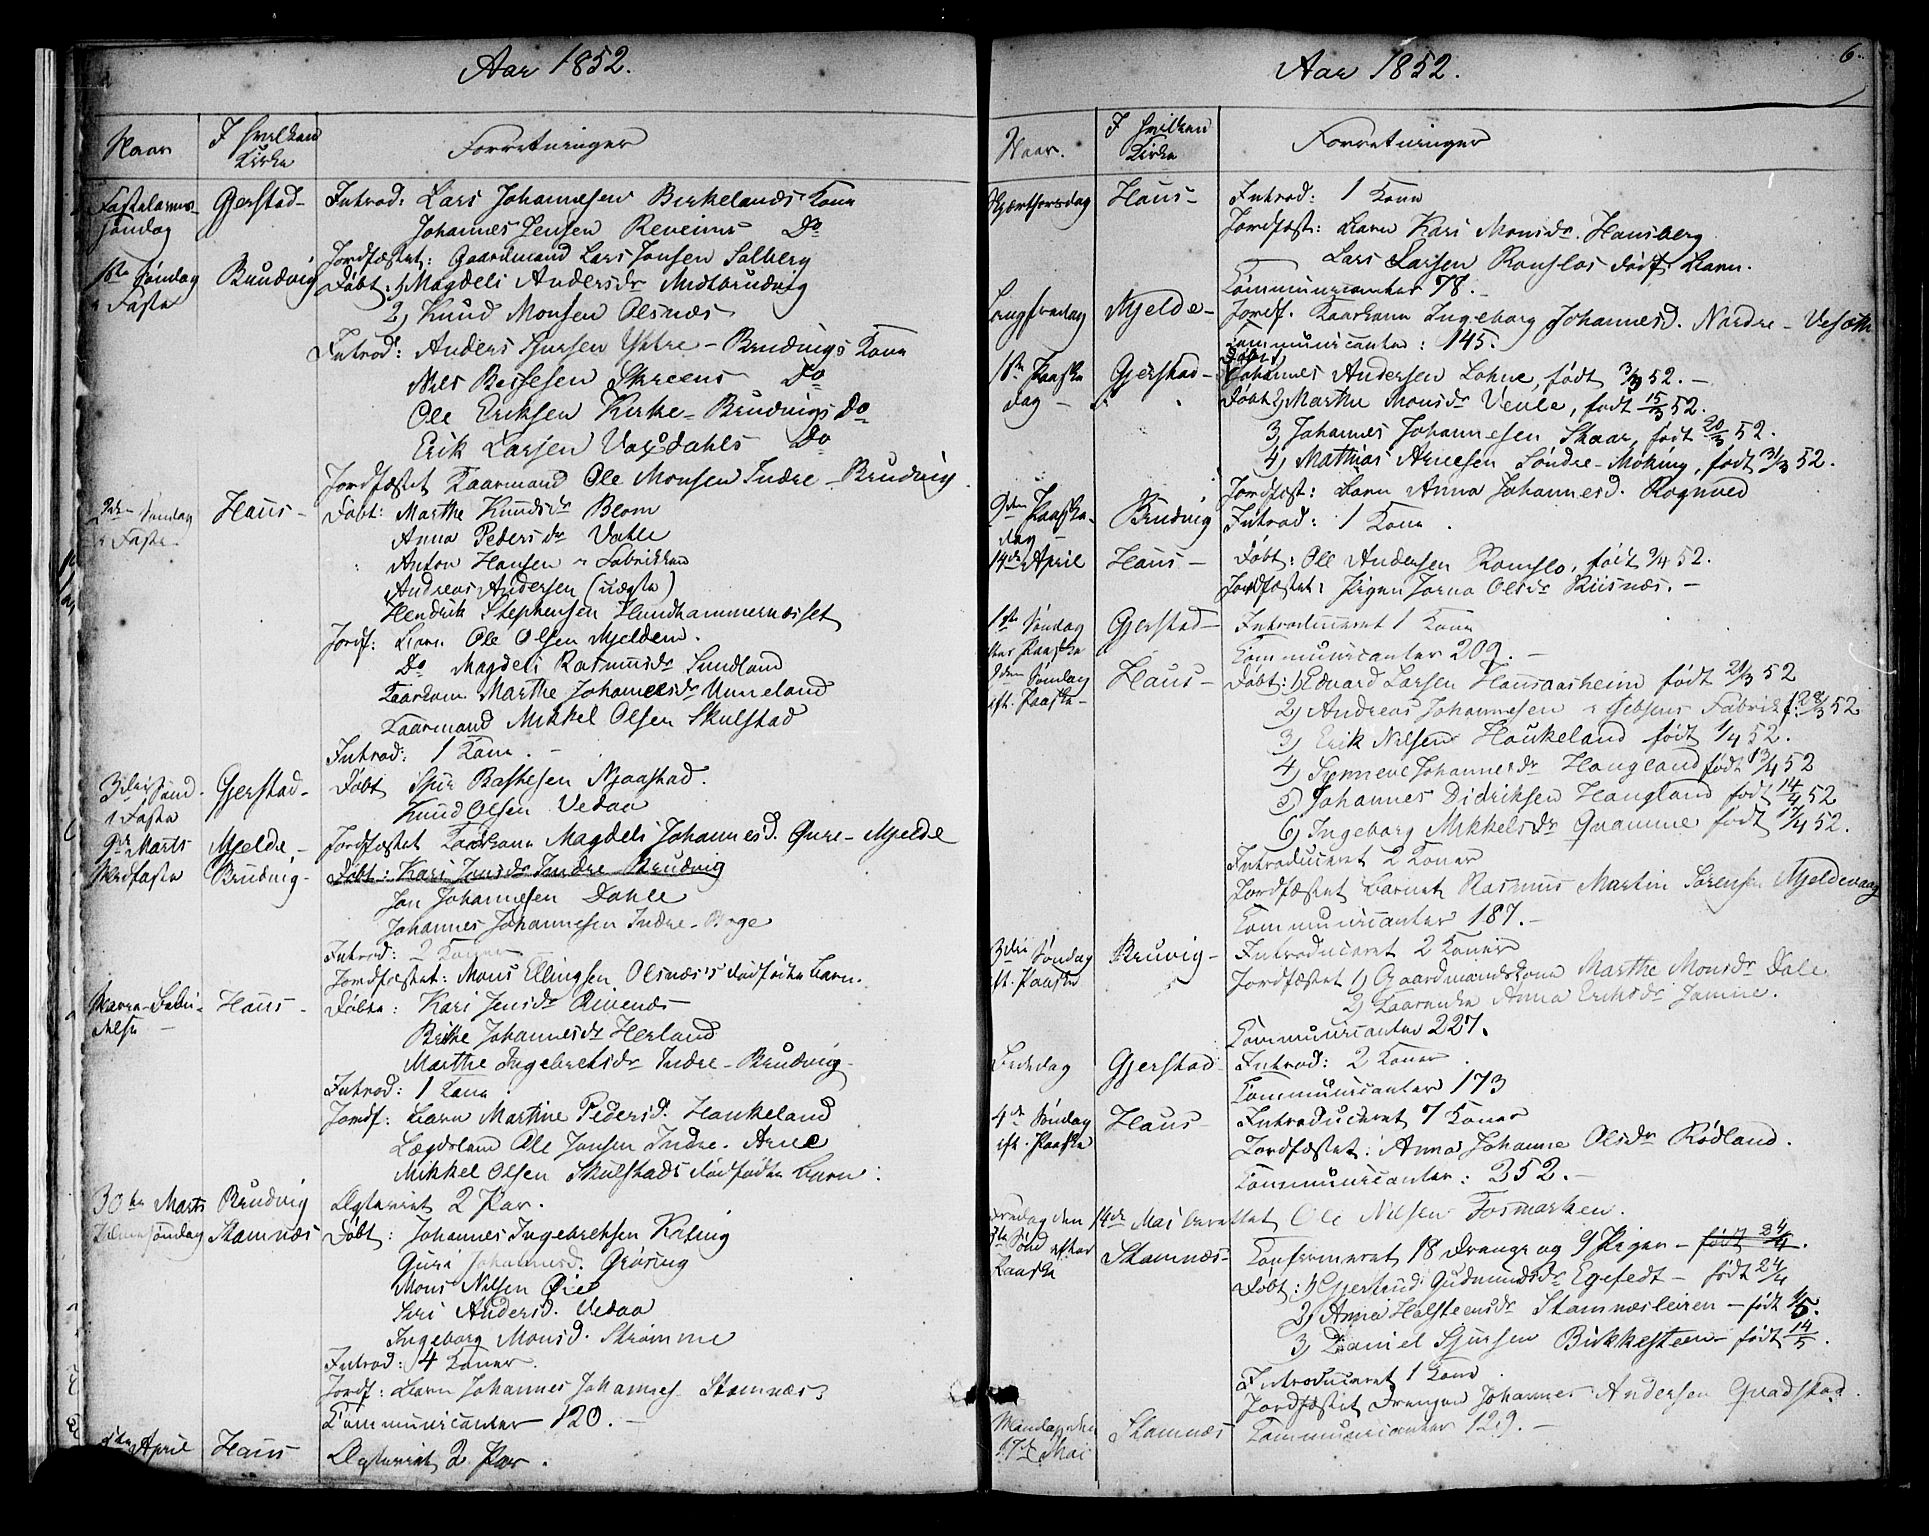 Aar 1852.
Naar
I hvilken Kirke
Forretninger
Fastelavns- Gjerstad- Introd: Lars Johannesen Birkelands Kone
søndag Johannes Jensen Reveims Do
Jordfæstet: Gaardmand Lars Jonsen Solberg
1ste Søndag Brudvig Døbt: 1, Magdeli Andersdr Midtbrudvig
i Faste 2, Knud Monsen Olsnæs
Introd: Anders Sjursen Ytre-Brudvigs Kone
Nils Skreens Do
Ole Eriksen Kirke-Brudvigs Do
Erik Larsen Vaxdahls Do
Jordfæstet Kaarmand Ole Monsen Indre-Brudvig
2den Søndag Haus- Døbt: Marthe Knudsdr Blom
i Faste. Anna Pedersdr Vatle
Anton Hansen Fabrikken
Andreas Andersen (uægte)
Hendrik Stephensen Hundhammernæsset
Jordf: Barn Ole Olsen Mjelden.
Do Magdeli Rasmusdr Sundland
Kaarkone Marthe Johannesdr Unneland
Kaarmand Mikkel Olsen Skulstad
Introd: 1 Kone. -
3die Sønd. Gjerstad- Døbt Njaastad.
i Faste Knud Olsen Vedaa
9de Marts Mjelde- Jordfæstet Kaarkone Magdeli Johannesd. Øvre-Mjelde
Midfaste Brudvig- Døbt: Kari Jonsdr Indre Brudvig
Jon Johannesen Dahle
Johannes Johannesen Indre-Boge
Introd: 2 Koner
Jordfæstet: Mons Ellingsen Olsnæs's dødfødte Barn.
Mariæ-Bebu- Haus- Døbte: Kari Jensdr
delse - Brithe Johannesdr Herland
Marthe Ingebretsdr Indre-Brudvig-
Introd: 1 Kone
Jordf: Barn Martine Pedersd. Haukeland
Lægdslem Ole Jonsen Indre-Arne
Mikkel Olsen Skulstads dødfødte Barn:
30te Marts Brudvig Ægteviet 2 Par.
Palmesøndag Stamnæs Døbt: Johannes Ingebretsen
Guri Johannesd.
Mons Nilsen
Andersd. Vedaa
Ingeborg Monsd. Strømme
Introd: 4 Koner.
Jordf: Barn Johannes Johannes Stamnæs
Communicanter 120. -
April Haus Ægteviet 2 Par.
6.
Aar 1852.
Naar.
I hvilken Kirke
Forretninger
Skjærthorsdag Haus- Introd: 1 Kone
Jordfæst: Barn Kari Monsdr. Hausberg
Lars Larsen Romslos dødf: Barn.
Communicanter 78. -
Langfredag Mjelde- Jordf. Kaarkone Ingeborg Johannesd. Nordre-
Communicanter: 145.
1ste Paaske Gjerstad- Døbt 1, Johannes Andersen Lohne, født 3/3 52. -
dag - Døbt 2, Marthe Monsdr Veule, født 15/3 52.
3, Johannes Johannesen Skaar, født 20/3 52.
4, Mathias Arnesen Søndre-Møking, født 31/3 52.
Jordfæst: Barn Anna Johannesd. Rognved
2den Paaske- Brudvig Introd: 1 Kone.
dag -
14de April Haus- Døbt: Ole Andersen Romslo, født 9/4 52.
Jordfæstet: Pigen Olsdr Riisnæs. -
1ste Søndag Gjerstad- Introduceret 1 Kone
efter Paaske Communicanter 209. -
2den Søndag Haus- Døbt: 1, Edvard Larsen Hausaasheim født 29/3 52
eft. Paaske- 2, Andreas Johannesen Fabrik f: 28/3 52
3, Erik Nilsen Haukeland født 1/4 52.
4, Synneve Johannesdr Haugland født 13/4 52
5, Johannes Didriksen Haugland født 14/4 52
6, Ingeborg Mikkelsdr Quamme født 17/4 52.
Introduceret 2 Koner
Jordfæstet Barnet Rasmus Martin Sørensen Mjeldevaag
Communicanter 187. -
3die Søndag Bruvig- Introduceret 2 Koner
eft. Paaske Jordfæstet 1, Gaardmandskone Marthe Monsdr Dale
2, Kaarenke Anna Eriksdr Jamne.
Communicanter 227.
Bededag Gjerstad Introd: 2 Koner
Communicanter 173
4de Søndag Haus- Introduceret 7 Koner
eft. Paaske Jordfæstet: Anna Johanne Olsdr Rødland.
Communicanter: 352. -
Fredag den 14de Mai berettet Ole Nilsen Fosmarken.
5te Sønd efter Paaske Stamnæs- Confirmeret 18 Drenge og 9 Piger - født 24/4.
Døbt: 1, Gjertrud Gudmundsdr - født 24/4
2, Anna Halsteensdr Stamnæsleiren - født 1/5.
3, Daniel Sjursen Birkkesteen - født 14/5.
Introduceret 1 Kone
Jordfæstet Drengen Johannes Andersen
Mandag den Stamnæs Communicanter 129. -
17de Mai